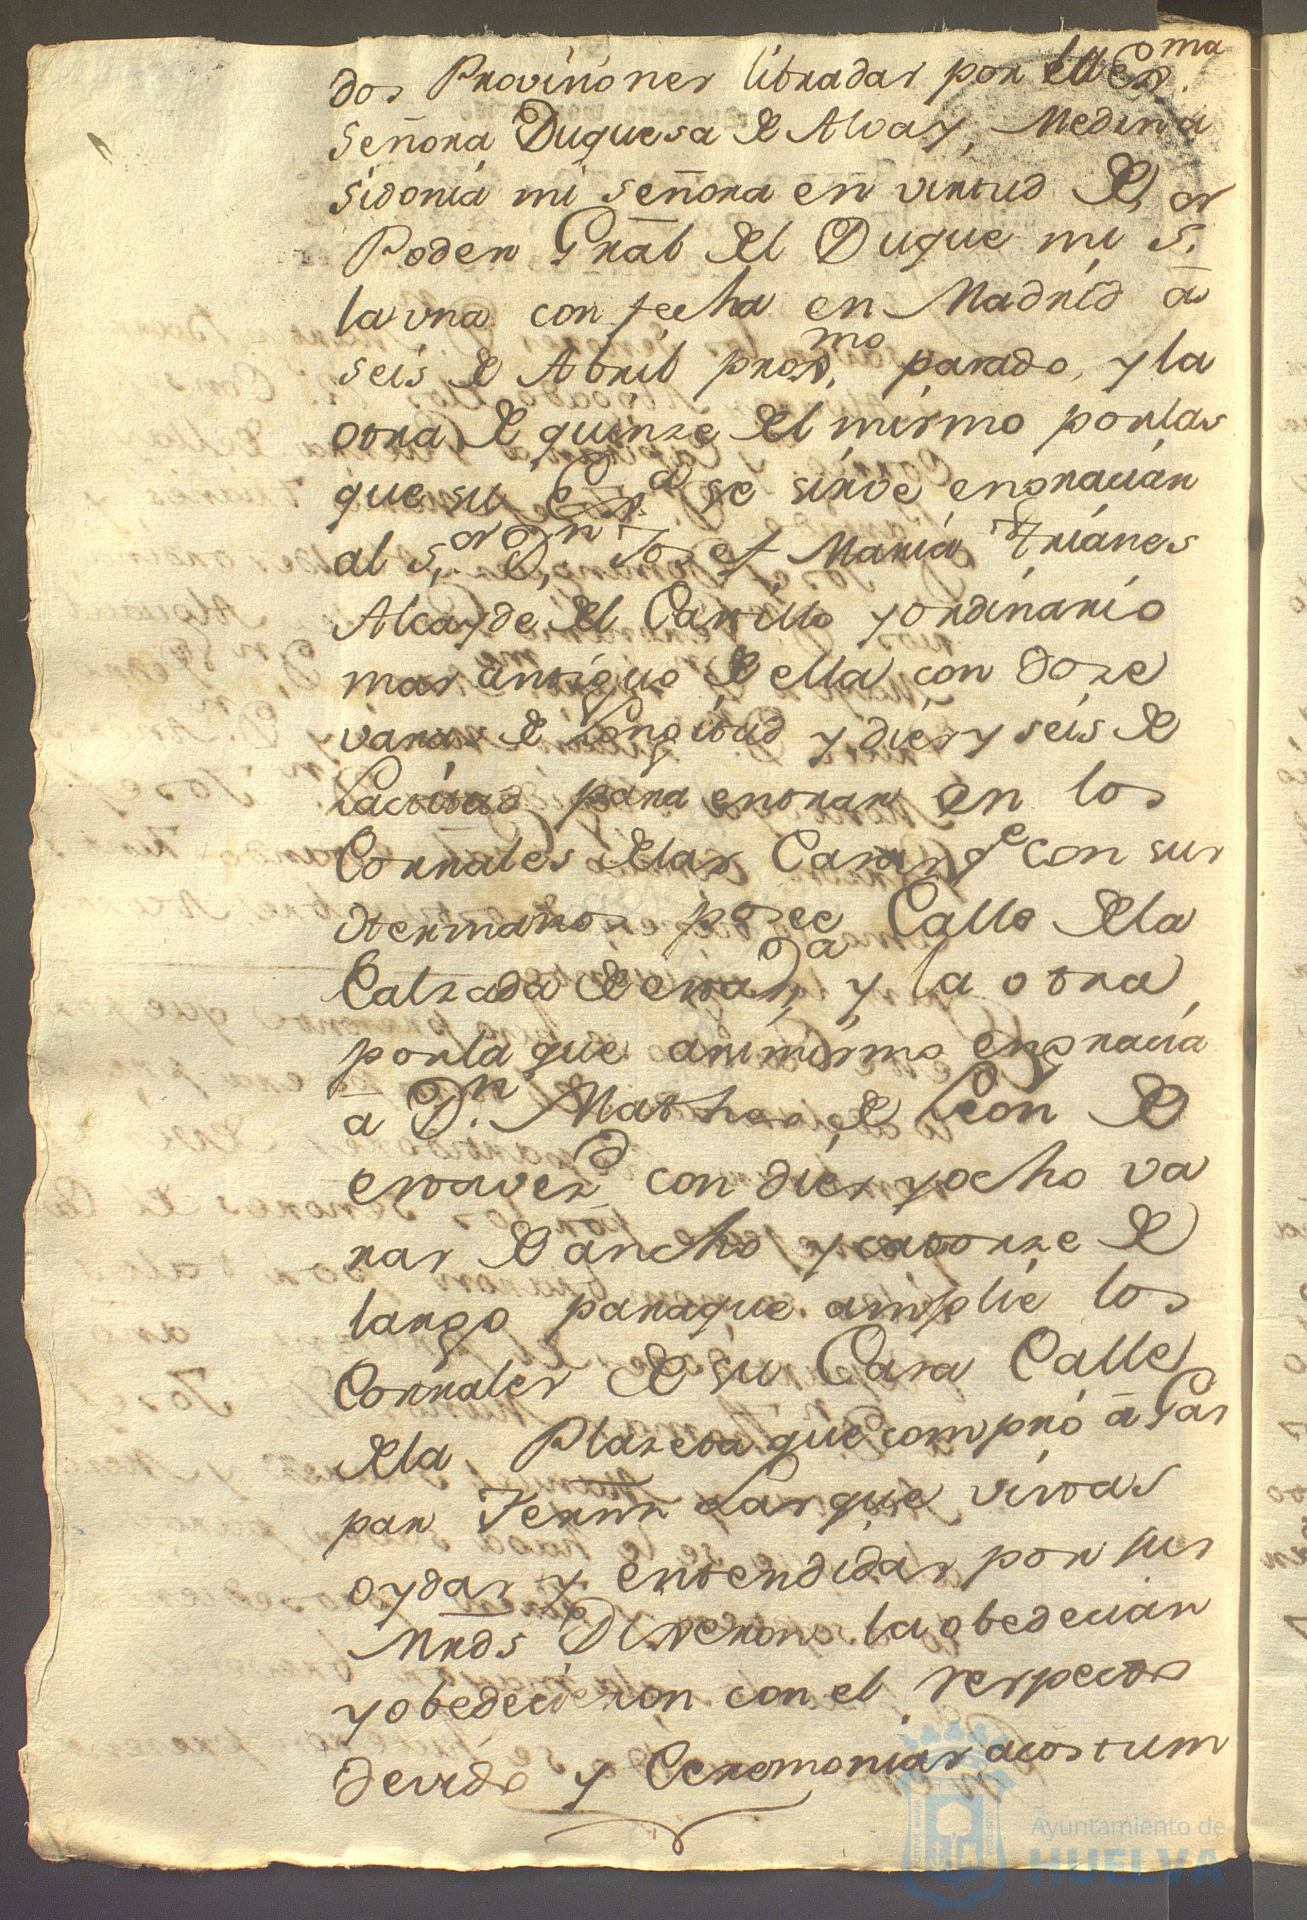 dos Provisiones libradas por la Ex.ma
señora Duquesa de Alva y, Medina
sidonia mi señora en virtud de,
Poder Gral del Duque mi S.or
la una con fecha en Madrid a
seis de Abril prox.mo pasado, y la
otra de quinze del mismo por las
que su Ex.a se sirve engraciar
al S.or D.n Josef Maria Trianes
Alcayde del Castillo y ordinario
mas antiguo de ella con doze
varas de Longitud y diez y seis de
Lactitud para entrar en los
Corrales de las Casas q.e con sus
Hermanos posee Calle de la
Calzada de esta v.a y la otra
por la que asimismo engracia
a D.n Matheo de Leon de
esta vez.d con diez y ocho va
ras de ancho y catorze de
largo para que amplie los
Corrales de su Casa Calle
de la Plazeta que compró a Gas
par Ferrnz Las que vistas
oydas y entendidas por sus
Mrds Dixeron la obedecian
y obedecieron con el respecto
devido y Ceremonias acostum
Ayuntamiento de
HUELVA